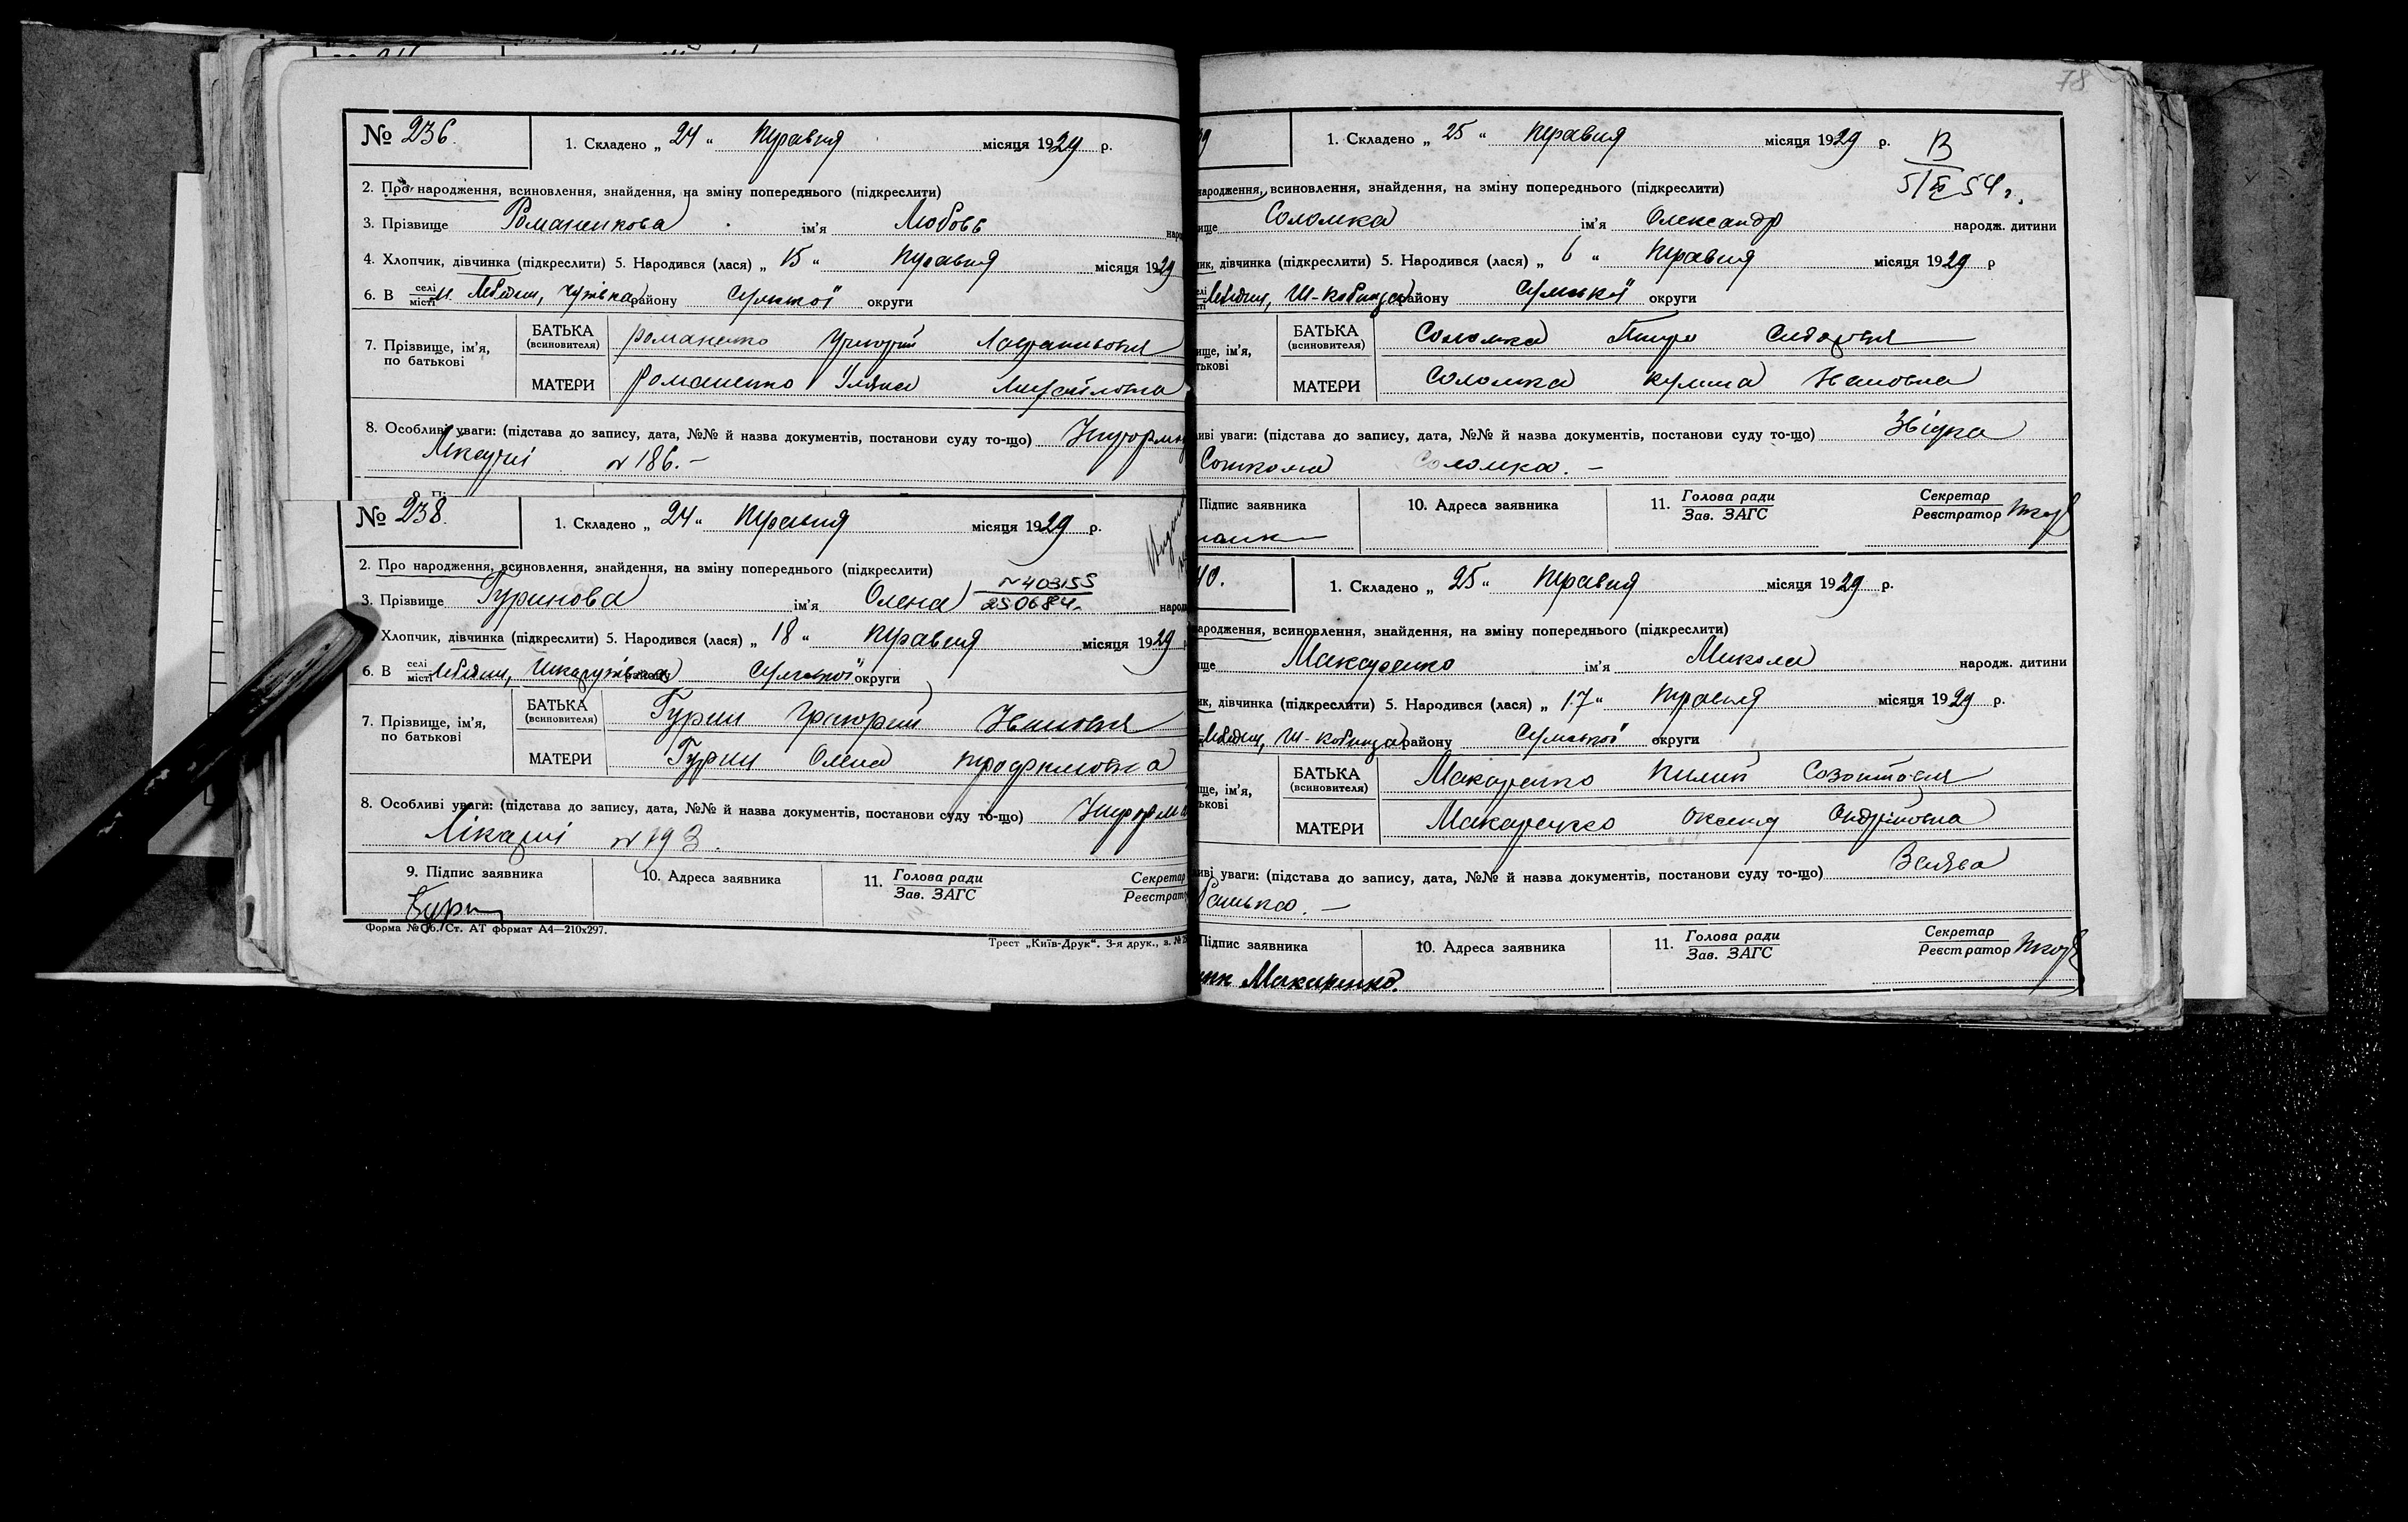 № 236.
1. Складено „ 24 “ травня місяця 1929 р.
2. Про народження, всиновлення, знайдення, на зміну попереднього (підкреслити)
3. Прізвище Романенкова ім'я Любовь
4. Хлопчик, дівчинка (підкреслити) 5. Народився (лася) „ 15 “ травня місяця 1929
6. В селі місті м. Лебедин, району Сумської округи
7. Прізвище, ім'я, по батькові
БАТЬКА (всиновителя) Романенко Григорій
МАТЕРИ Романенко Уляна Михайловна
8. Особливі уваги: (підстава до запису, дата, №№ й назва документів, постанови суду то-що)
Лікарні № 186. –
№ 238.
1. Складено „ 24 “ травня місяця 1929 р.
2. Про народження, всиновлення, знайдення, на зміну попереднього (підкреслити)
№ 403155
3. Прізвище Гуринова ім'я Олена 250684.
Хлопчик, дівчинка (підкреслити) 5. Народився (лася) „ 18 “ травня місяця 1929
6. В селі місті Лебедин, району Сумської округи
7. Прізвище, ім'я, по батькові
БАТЬКА (всиновителя) Гурин Григорий Ивановия
МАТЕРИ Гурин Олена Трофимовна
8. Особливі уваги: (підстава до запису, дата, №№ й назва документів, постанови суду то-що)
Лікарні № 193.
9. Підпис заявника 10. Адреса заявника 11. Голова ради Зав. ЗАГС Секретар
Гурин
Форма № Ст. АТ формат А4—210х297.
Трест „Київ-Друк“. 3-я друк., з. №
78
1. Складено „ 25 “ травня місяця 1929 р.
В
5/IX 54 г.
народження, всиновлення, знайдення, на зміну попереднього (підкреслити)
Соломка ім'я Олександр народж. дитини
дівчинка (підкреслити) 5. Народився (лася) „ 6 “ травня місяця 1929 р
Лебедин, району Сумської округи
БАТЬКА (всиновителя) Соломка Петро
МАТЕРИ Соломка Ивановна
уваги: (підстава до запису, дата, №№ й назва документів, постанови суду то-що)
Соломка. –
Підпис заявника 10. Адреса заявника 11. Голова ради Зав. ЗАГС Секретар Реєстратор
40.
1. Складено „ 25 “ травня місяця 1929 р.
народження, всиновлення, знайдення, на зміну попереднього (підкреслити)
Макаренко ім'я Микола народж. дитини
дівчинка (підкреслити) 5. Народився (лася) „ 17 “ травня місяця 1929 р.
Лебедин, району Сумської округи
БАТЬКА (всиновителя) Макаренко Пилип
МАТЕРИ Макаренко Оксенія Андріївна
уваги: (підстава до запису, дата, №№ й назва документів, постанови суду то-що) Заява
Батька. –
Підпис заявника 10. Адреса заявника 11. Голова ради Зав. ЗАГС Секретар Реєстратор
Макаренко.